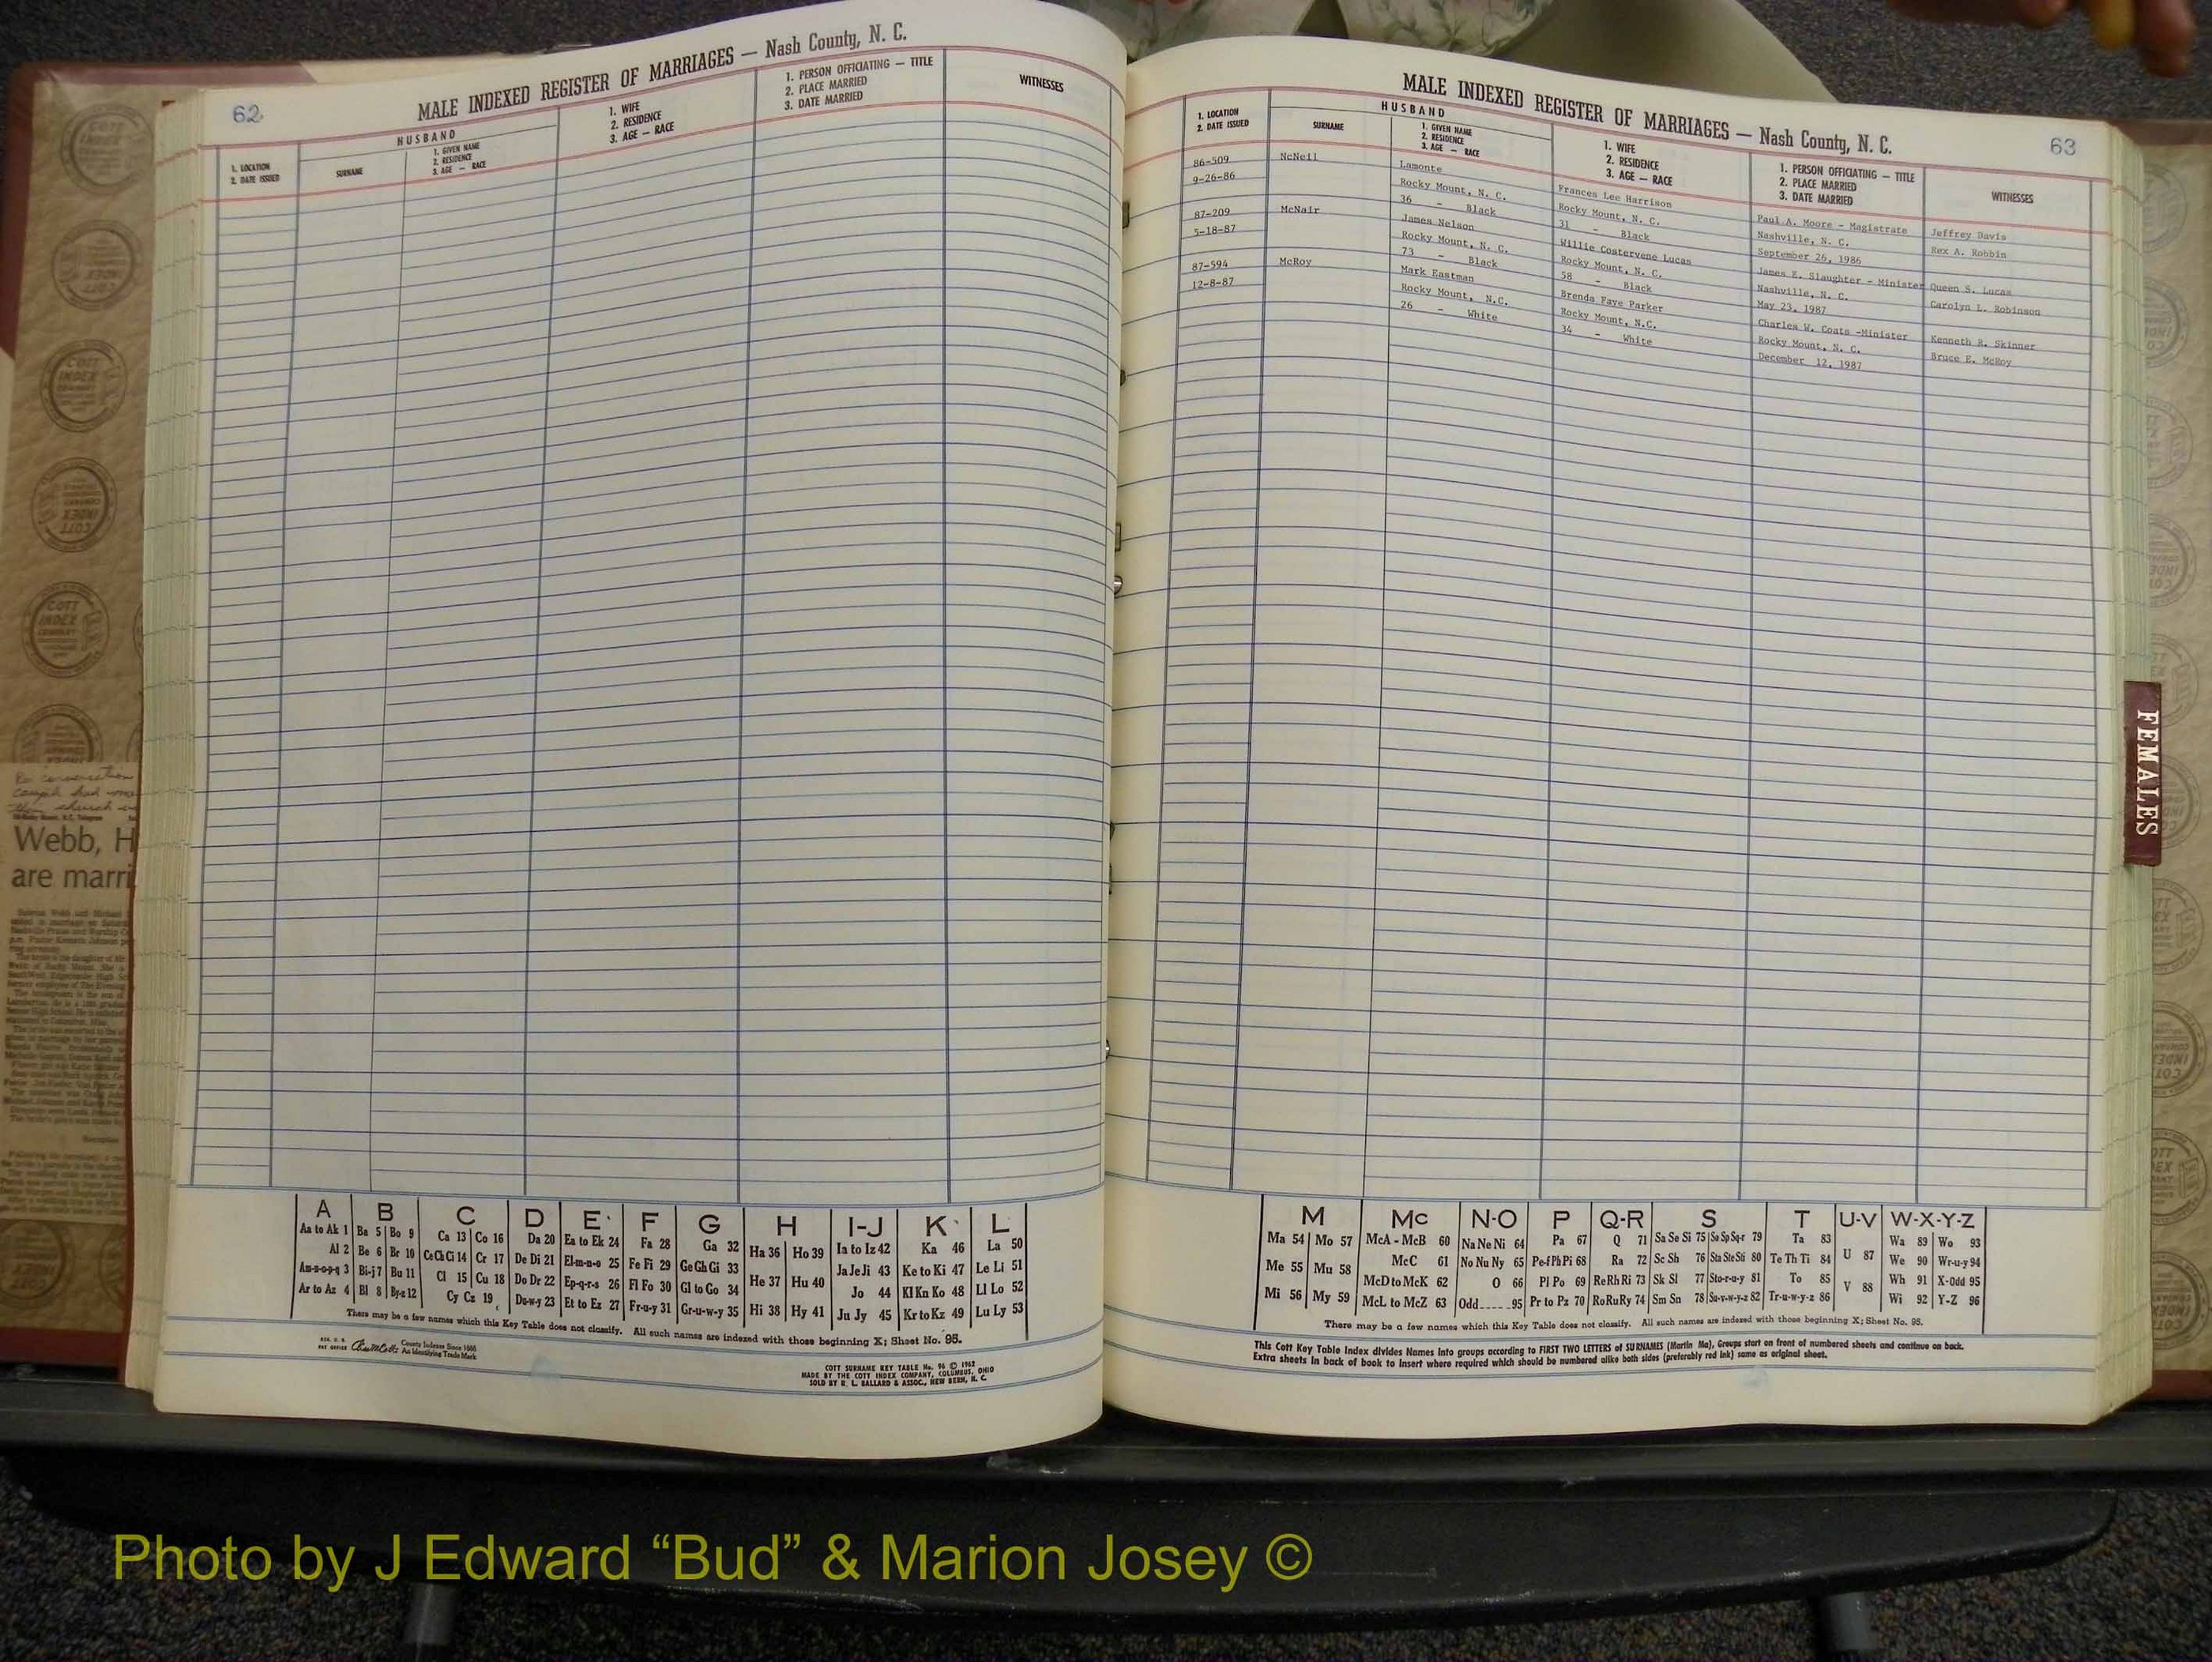 62
MALE INDEXED REGISTER OF MARRIAGES — Nash County, N. C.
1. LOCATION
2. DATE ISSUED
HUSBAND
SURNAME
1. GIVEN NAME
2. RESIDENCE
3. AGE — RACE
1. WIFE
2. RESIDENCE
3. AGE — RACE
1. PERSON OFFICIATING — TITLE
2. PLACE MARRIED
3. DATE MARRIED
WITNESSES
A B C D E F G H I-J K L
Aa to Ak 1 Ba 5 Bo 9 Ca 13 Co 16 Da 20 Ea to Ek 24 Fa 28 Ga 32 Ha 36 Ho 39 Ia to Iz 42 Ka 46 La 50
Al 2 Be 6 Br 10 Ce Ch Ci 14 Cr 17 De Di 21 El-m-n-o 25 Fe Fi 29 Ge Gh Gi 33 He 37 Hu 40 Ja Je Ji 43 Ke to Ki 47 Le Li 51
Am-n-o-p-q 3 Bi-j 7 Bu 11 Cl 15 Cu 18 Do Dr 22 Ep-q-r-s 26 Fl Fo 30 Gl to Go 34 Hi 38 Hy 41 Jo 44 Kl Kn Ko 48 Ll Lo 52
Ar to Az 4 Bl 8 By-z 12 Cy Cz 19 Du-w-y 23 Et to Ez 27 Fr-u-y 31 Gr-u-w-y 35 Ju Jy 45 Kr to Kz 49 Lu Ly 53
There may be a few names which this Key Table does not classify. All such names are indexed with those beginning X; Sheet No. 95.
County Indexes Since 1888
An Identifying Trade Mark
COTT SURNAME KEY TABLE No. 96 © 1962
MADE BY THE COTT INDEX COMPANY, COLUMBUS, OHIO
SOLD BY R. L. BALLARD & ASSOC., NEW BERN, N. C.
MALE INDEXED REGISTER OF MARRIAGES — Nash County, N. C.
63
1. LOCATION
2. DATE ISSUED
HUSBAND
SURNAME
1. GIVEN NAME
2. RESIDENCE
3. AGE — RACE
1. WIFE
2. RESIDENCE
3. AGE — RACE
1. PERSON OFFICIATING — TITLE
2. PLACE MARRIED
3. DATE MARRIED
WITNESSES
86-509 McNeil Lamonte Frances Lee Harrison Paul A. Moore - Magistrate Jeffrey Davis
9-26-86 Rocky Mount, N. C. Rocky Mount, N. C. Nashville, N. C. Rex A. Robbin
36 - Black 31 - Black September 26, 1986
87-209 McNair James Nelson Willie Costervene Lucas James E. Slaughter - Minister Queen S. Lucas
5-18-87 Rocky Mount, N. C. Rocky Mount, N. C. Nashville, N. C. Carolyn L. Robinson
73 - Black 58 - Black May 23, 1987
87-594 McRoy Mark Eastman Brenda Faye Parker Charles W. Coats -Minister Kenneth R. Skinner
12-8-87 Rocky Mount, N.C. Rocky Mount, N.C. Rocky Mount, N. C. Bruce E. McRoy
26 - White 34 - White December 12, 1987
M Mc N-O P Q-R S T U-V W-X-Y-Z
Ma 54 Mo 57 McA - McB 60 Na Ne Ni 64 Pa 67 Q 71 Sa Se Si 75 So Sp Sq-r 79 Ta 83 U 87 Wa 89 Wo 93
Me 55 Mu 58 McC 61 No Nu Ny 65 Pe-f Ph Pi 68 Ra 72 Sc Sh 76 Sta Ste Sti 80 Te Th Ti 84 V 88 We 90 Wr-u-y 94
Mi 56 My 59 McD to McK 62 O 66 Pl Po 69 Re Rh Ri 73 Sk Sl 77 Sto-r-u-y 81 To 85 Wh 91 X-Odd 95
McL to McZ 63 Odd 95 Pr to Pz 70 Ro Ru Ry 74 Sm Sn 78 Su-v-w-y-z 82 Tr-u-w-y-z 86 Wi 92 Y-Z 96
There may be a few names which this Key Table does not classify. All such names are indexed with those beginning X; Sheet No. 95.
This Cott Key Table Index divides Names into groups according to FIRST TWO LETTERS of SURNAMES (Martin Ma), Groups start on front of numbered sheets and continue on back.
Extra sheets in back of book to insert where required which should be numbered alike both sides (preferably red ink) same as original sheet.
FEMALES
COTT
INDEX
COMPANY
Webb, H
are marri
Photo by J Edward “Bud” & Marion Josey ©